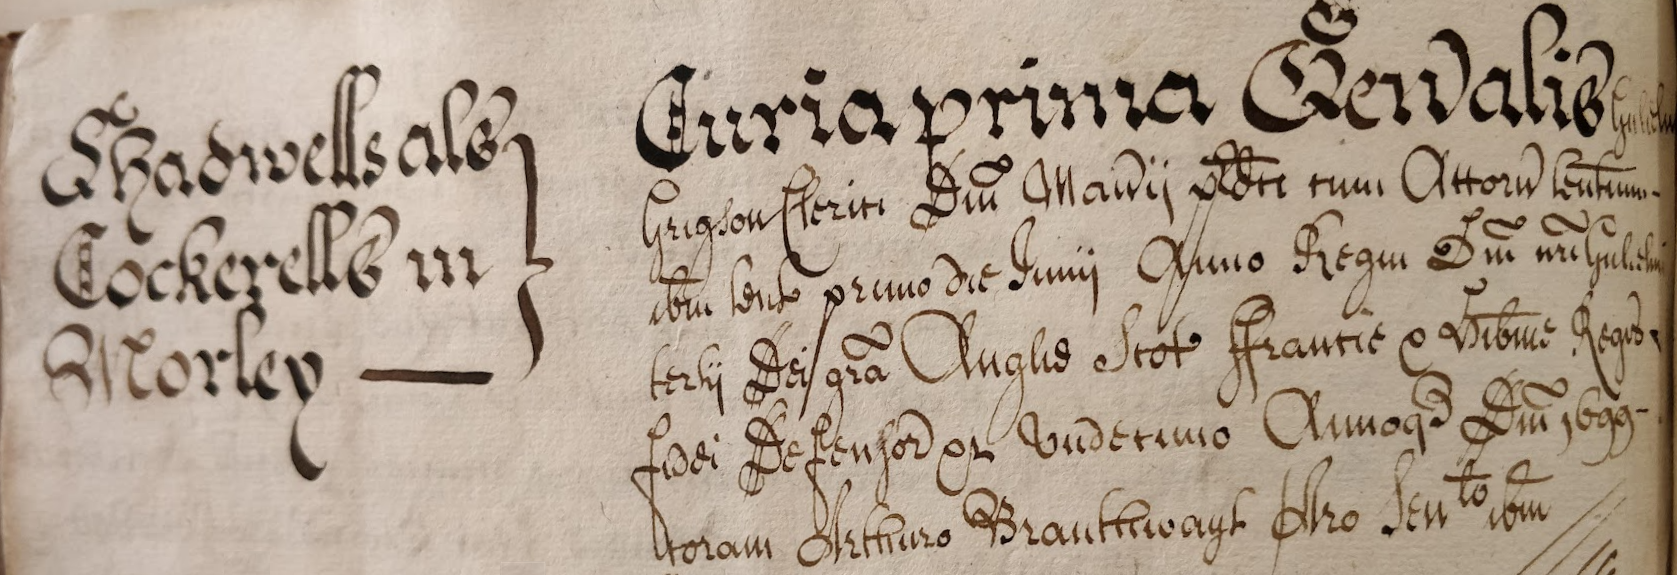 Shadwells als
Cockerells in
Morley —
Curia prima Gen'alis Gulielmi
Grigson Clerici Dñi Man'ij p'dict cum Attorn' tentium
ibm tent primo die Junij Anno Regni Dñi nri Gulielmi
tertij Dei grã Anglie Scot Ffrancie & Hibnie Regis
fidei Defensor' &c undecimo Annoq' Dñi 1699
Coram Arthuro Branthwayt Armo Sen^lo ibm